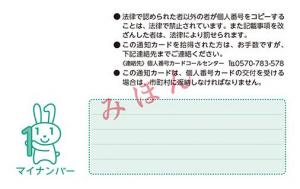 ●法律で認められた者以外の者が個人番号をコピーする
ことは、法律で禁止されています。また記載事項を改
ざんした者は、法律により罰せられます。
●この通知カードを拾得された方は、お手数ですが、
下記連絡先までご連絡ください。
《連絡先》個人番号カードコールセンター ℡0570-783-578
●この通知カードは、個人番号カードの交付を受ける
場合は、市町村に返納しなければなりません。
みほん
1
マイナンバー